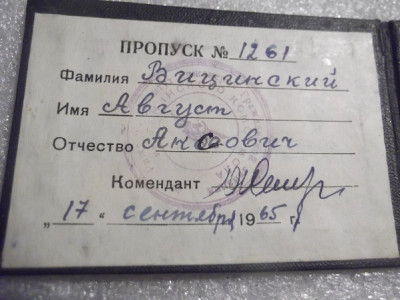 ПРОПУСК № 1261
Фамилия Вицинский
Имя Август
Отчество Антович
Комендант
„17 “ сентября 1965 г.